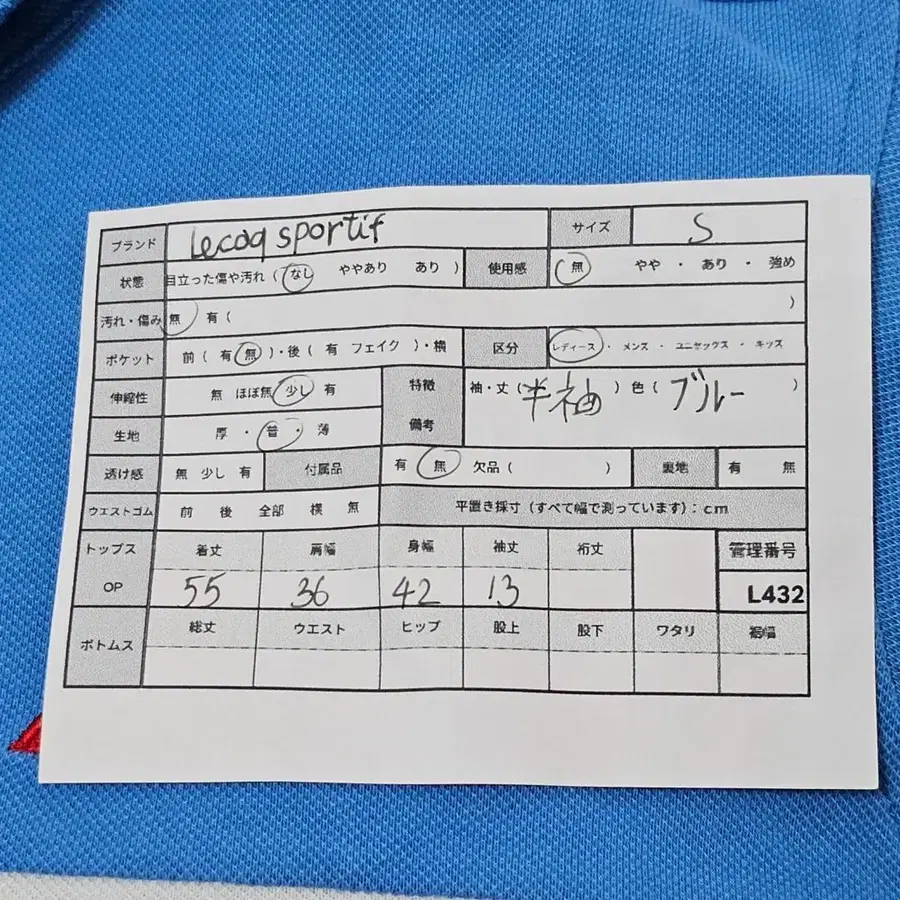 ブランド lecoq sportif サイズ S
状態 目立った傷や汚れ ( なし ややあり あり ) 使用感 無 やや ・ あり ・ 強め
汚れ・傷み 無 有 ( )
ポケット 前 ( 有 無 )・後 ( 有 フェイク )・横 区分 レディース ・ メンズ ・ ユニセックス ・ キッズ
伸縮性 無 ほぼ無 少し 有 特徴 備考 袖・丈 ( 半袖 ) 色 ( ブルー )
生地 厚 ・ 普 ・ 薄
透け感 無 少し 有 付属品 有 無 欠品 ( ) 裏地 有 無
ウエストゴム 前 後 全部 横 無 平置き採寸 (すべて幅で測っています) : cm
トップス 着丈 肩幅 身幅 袖丈 裄丈 管理番号
OP 55 36 42 13 L432
ボトムス 総丈 ウエスト ヒップ 股上 股下 ワタリ 裾幅